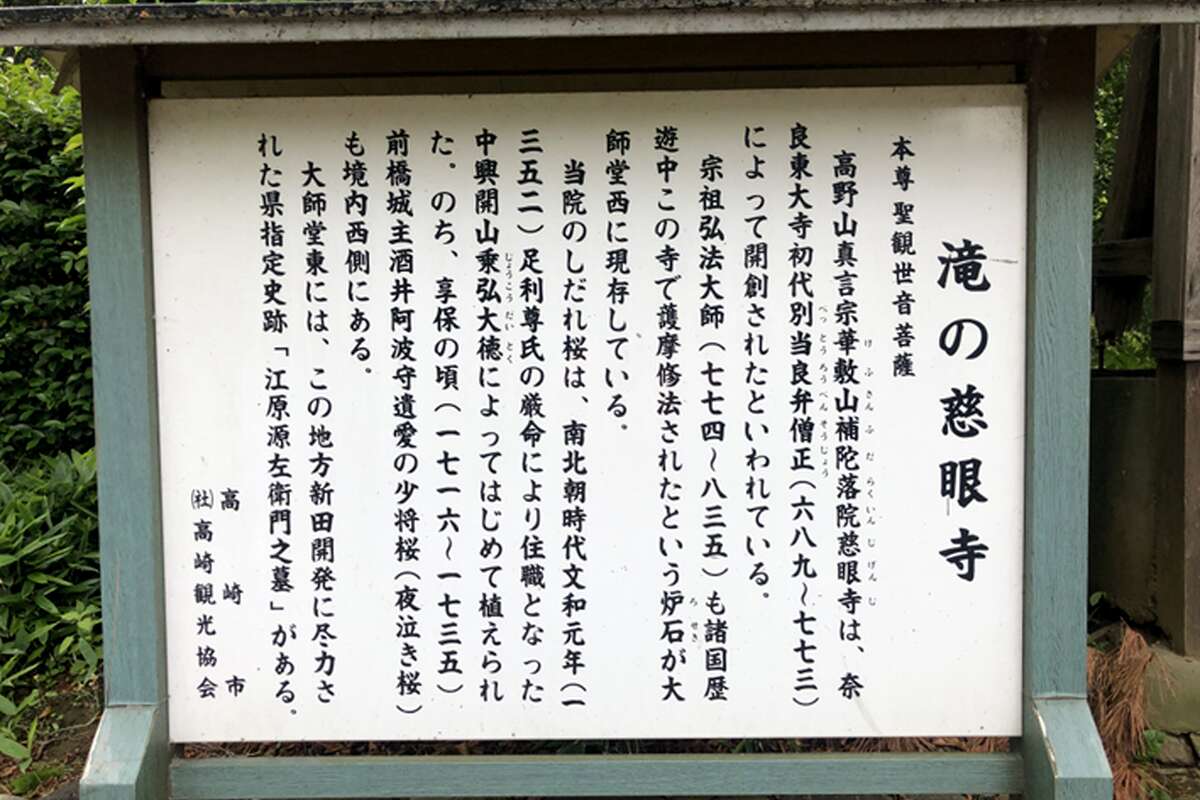 滝の慈眼寺
本尊聖観世音菩薩
高野山真言宗華敷山補陀落院慈眼寺は、奈
良東大寺初代別当良弁僧正(六八九〜七七三)
によって開創されたといわれている。
宗祖弘法大師(七七四〜八三五)も諸国歴
遊中この寺で護摩修法されたという炉石が大
師堂西に現存している。
当院のしだれ桜は、南北朝時代文和元年(一
三五二)足利尊氏の厳命により住職となった
中興開山乗弘大徳によってはじめて植えられ
た。のち、享保の頃(一七一六〜一七三五)
前橋城主酒井阿波守遺愛の少将桜(夜泣き桜)
も境内西側にある。
大師堂東には、この地方新田開発に尽力さ
れた県指定史跡「江原源左衛門之墓」がある。
高崎市
㈳高崎観光協会